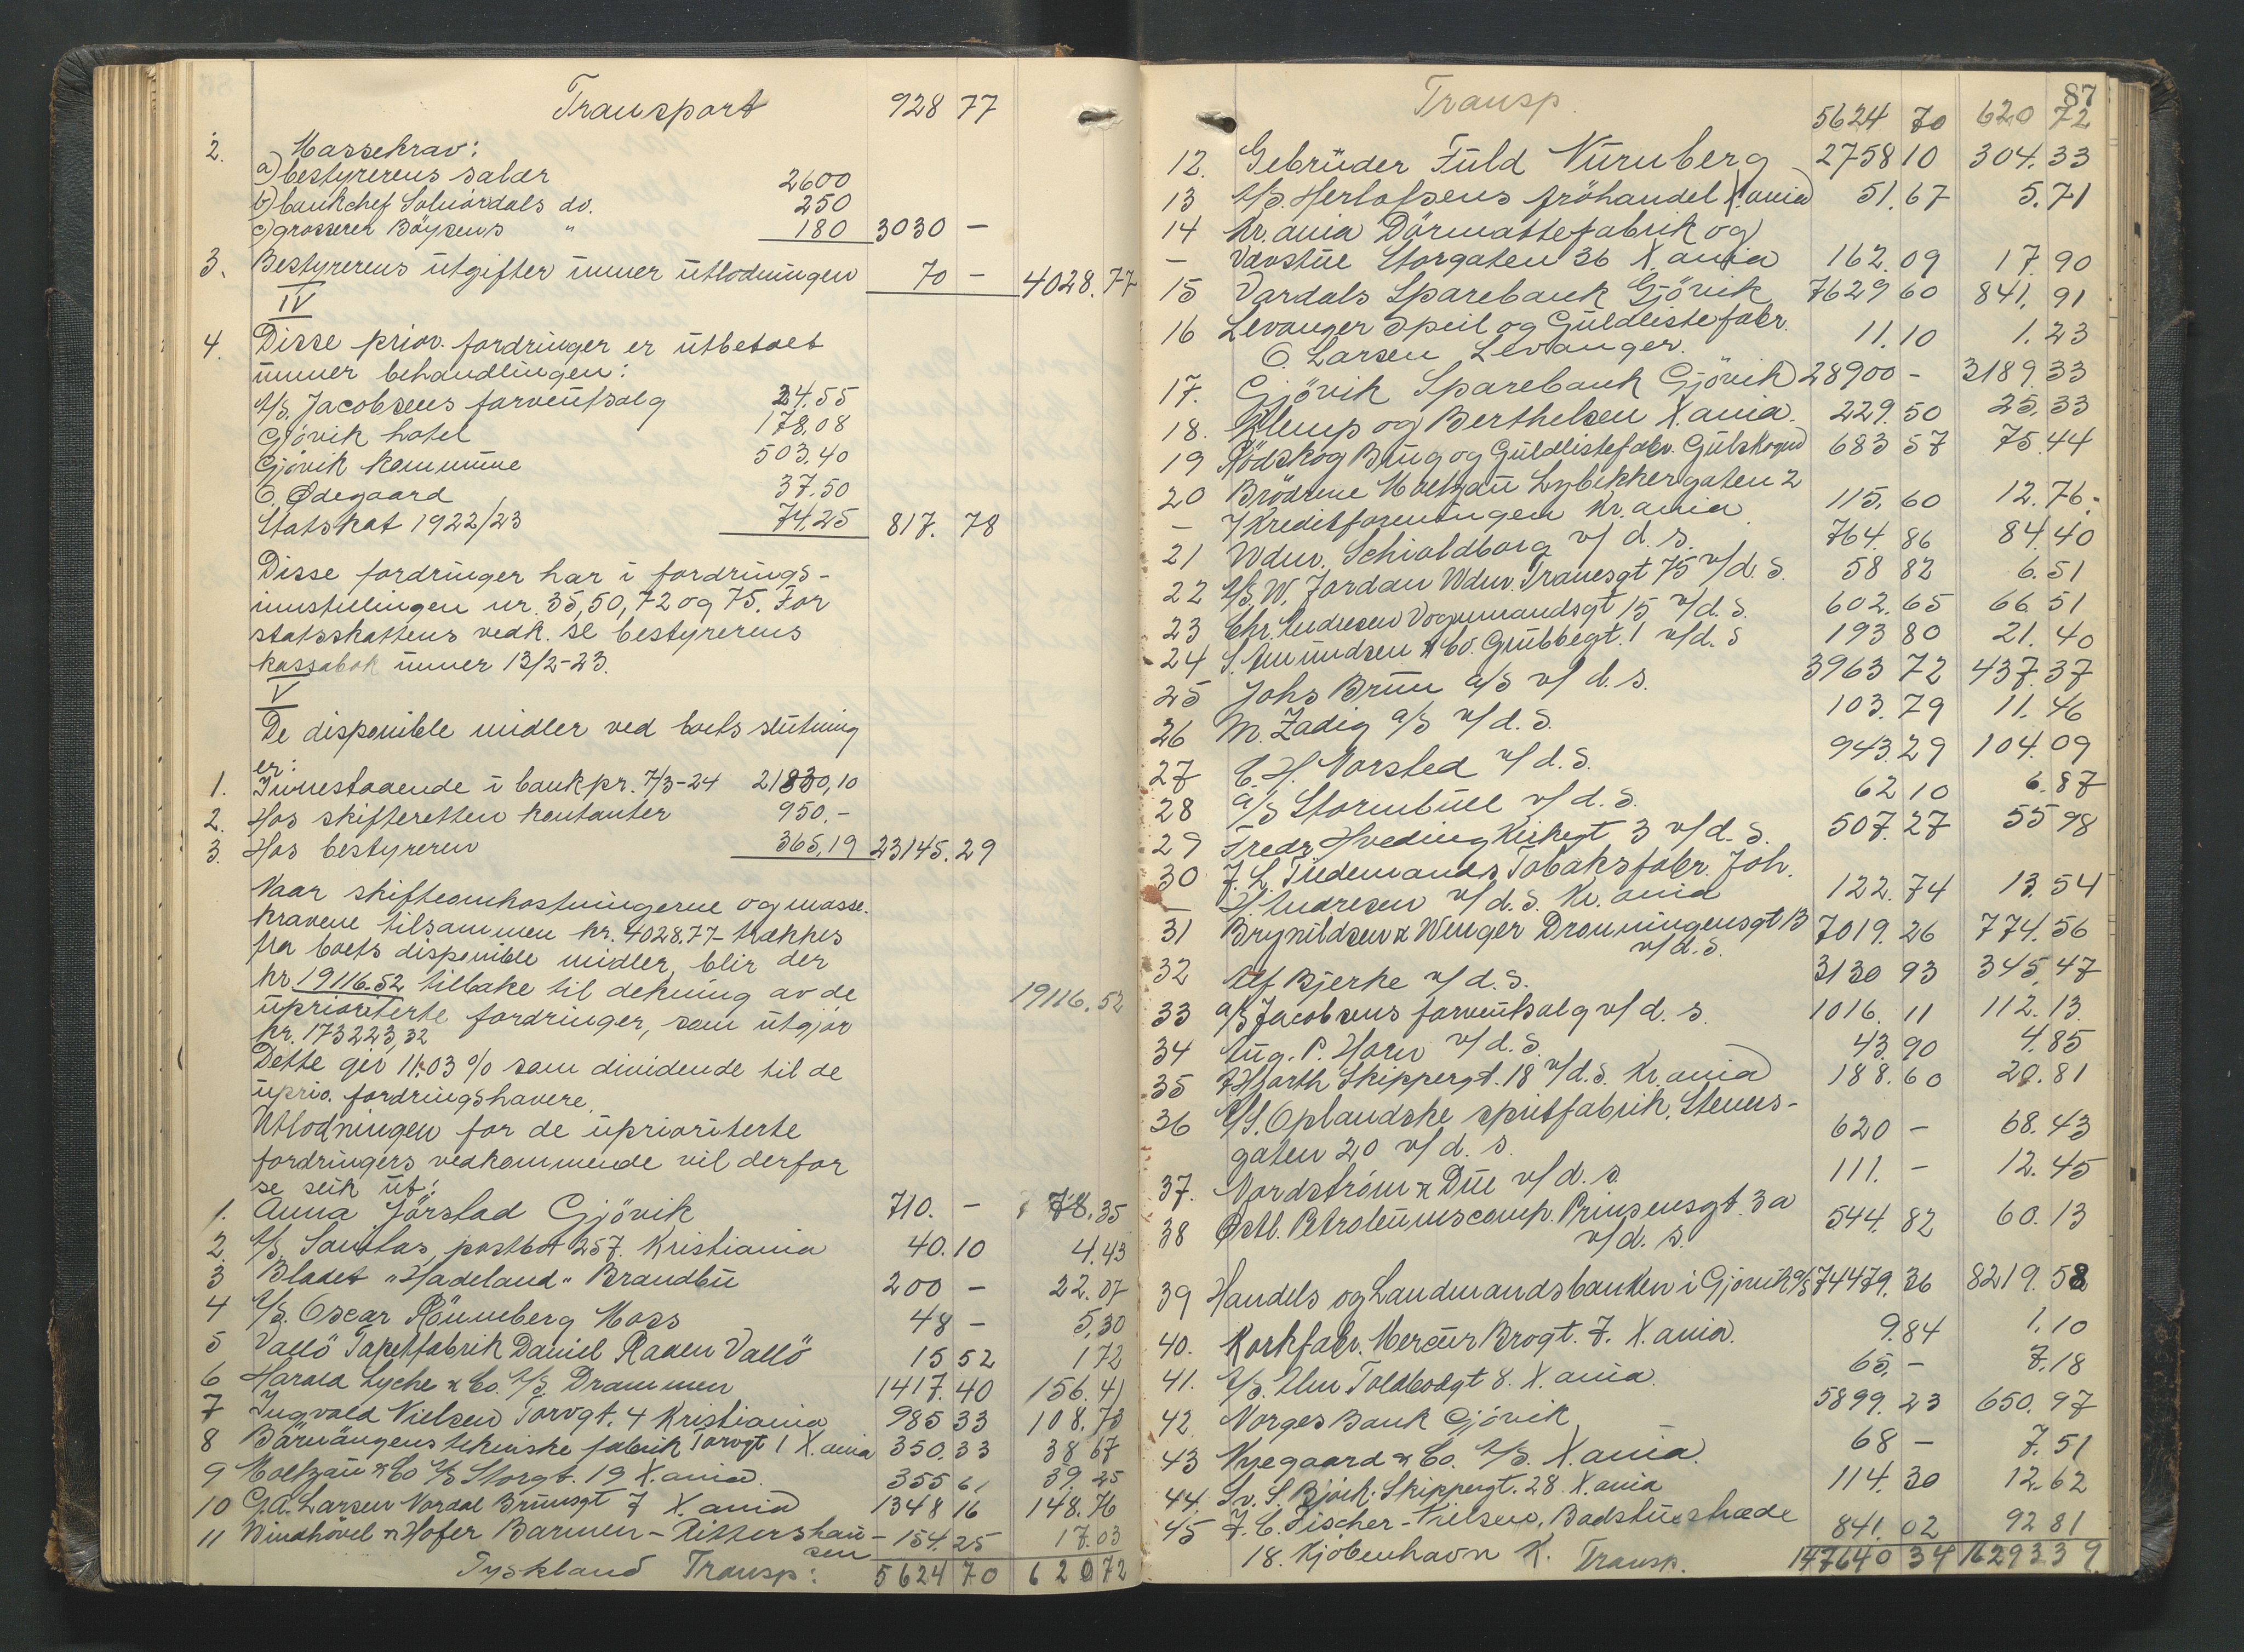 Transport 928 77
2. Massekrav:
a) bestyrerens salær 2600
b) bankchef Solnørdals do. 250
c) grosserer Böysens " 180 3030 –
3. Bestyrerens utgifter under utlodningen 70 – 4028.77
IV
4. Disse priov. fordringer er utbetalt
under behandlingen:
A/S. Jacobsens farveutsalg 24.55
Gjövik hotel 178.08
Gjövik kommune 503.40
O. Ødegaard 37.50
Statskat 1922/23 74.25 817. 78
Disse fordringer har i fordrings-
innstillingen nr. 35, 50, 72 og 75. For
statsskattens vedk. se bestyrerens
kassabok under 13/2-23.
V
De disponible midler ved boets slutning
er:
1. Innestaaende i bank pr. 7/3-24 21830,10
2. Hos skifteretten kontanter 950.-
3. Hos bestyreren 365,19 23145.29
Naar skifteomkostningerne og masse-
kravene tilsammen kr. 4028.77 trækkes
fra boets disponible midler, blir der
kr 19116.52 tilbake til dekning av de 19116.52
uprioriterte fordringer, som utgjör
kr. 173223,32
Dette gir 11.03 % som dividende til de
uprio. fordringshavere.
Utlodningen for de uprioriterte
fordringers vedkommende vil derfor
se slik ut:
1. Anna Jörstad Gjövik 710. – 78.35
2. A/S. Sanitas, postbox 257. Kristiania 40.10 4.43
3 Bladet "Hadeland" Brandbu 200 – 22.07
4 A/S. Oscar Rönneberg Moss 48 – 5,30
5 Vallö Tapetfabrik Daniel Raaen Vallö 15 52 1 72
6 Harald Lyche & Co. A/S. Drammen 1417.40 156.41
7 Ingvald Nielsen Torvgt. 4 Kristiania 985 33 108.73
8 Barnängens tekniske fabrik Torvgt 1 X.ania 350.33 38 67
9 Moltzau & Co A/S Storgt. 19 X.ania. 355 61 39.25
10 C.A. Larsen Nordal Brunsgt 7 X.ania 1348 16 148.76
11 Windhövel & Hofer Barmen-Rittershau- 154.25 17.03
sen
Tyskland Transp: 5624 70 620 72
87
Transp. 5624 70 620 72
12. Gebrüder Fuld Nürnberg 2758 10 304.33
13 A/S. Herlofsens fröhandel X.ania 51.67 5.71
14 Kr.ania Dörmattefabrik og
– Vævstue Storgaten 36 X.ania 162.09 17.90
15 Vardals Sparebank Gjövik 7629 60 841.91
16 Levanger Speil og Guldlistefabr.
O. Larsen Levanger. 11.10 1.23
17. Gjövik Sparebank Gjövik 28900 – 3189.33
18. Glemp og Berthelsen X.ania. 229.50 25.33
19 Rödskog Brug og Guldlistefabr. Gulskogen 683 57 75.44
20 Brödrene Moltzau Lybikkergaten 2
– v/ Kreditforeningen Kr.ania 115.60 12.76.
21 Wdm. Schioldborg v/ d. s. 764.86 84.40
22 A/S, W. Jordan Wdm. Tranesgt 75 v/d. s. 58 82 6.51
23 Chr. Andresen Vognmandsgt 15 v/d. s. 602.65 66 51
24 S. Amundsen & Co. Grubbegt. 1 v/d. s 193 80 21.40
25 Johs Bruu a/s v/ d. s. 3963 72 437.37
26 M. Zadig a/s v/d. s. 103.79 11.46
27 C. H. Norsted v/d. s. 943.29 104.09
28 a/s Stormbull v/ d. s. 62 10 6.87
29 Fredr Hveding Kirkegt 3 v/d. s. 507.27 55 98
30 J. L. Tiedemands Tobaksfabr. Joh.
– H. Andresen v/d. s. Kr. ania 122.74 13.54
31 Brynildsen & Wenger Dronningensgt 13 7019.26 774.56
v/d. s.
32 Alf Bjerke v/ d. s. 3130 93 345.47
33 a/s Jacobsens farveutsalg v/ d. s. 1016. 11 112.13.
34 Aug. P. Horn v/d. s. 43.90 4.85
35 Harth Skippergt. 18 v/d. s. Kr.ania 188.60 20.81
36 A/S. Oplandske spritfabrik. Steners-
gaten 20 v/ d. s. 620 – 68.43
37. Nordström & Due v/ d. s. 111. – 12.45
38 Østl. Petroleumscomp. Prinsensgt. 3a 544.82 60.13
v/d. s.
39 Handels og Landmandsbanken i Gjövik a/s 74479.36 8219.58
40. Korkfabr. Mercur Brogt. 7. X.ania. 9.84 1.10
41. A/S. Ulm Toldbodgt 8. X.ania. 65,– 7.18
42. Norges Bank Gjövik 5899.23 650.97
43 Nyegaard & Co. A/S. X.ania. 68 – 7.51
44. Sv. S. Björk. Skippergt. 28. X.ania 114.30 12.62
45 J. C. Fischer-Nielsen. Badstuestræde 841.02 92 81
18. Kjöbenhavn K. Transp. 147640 34 16293 39.